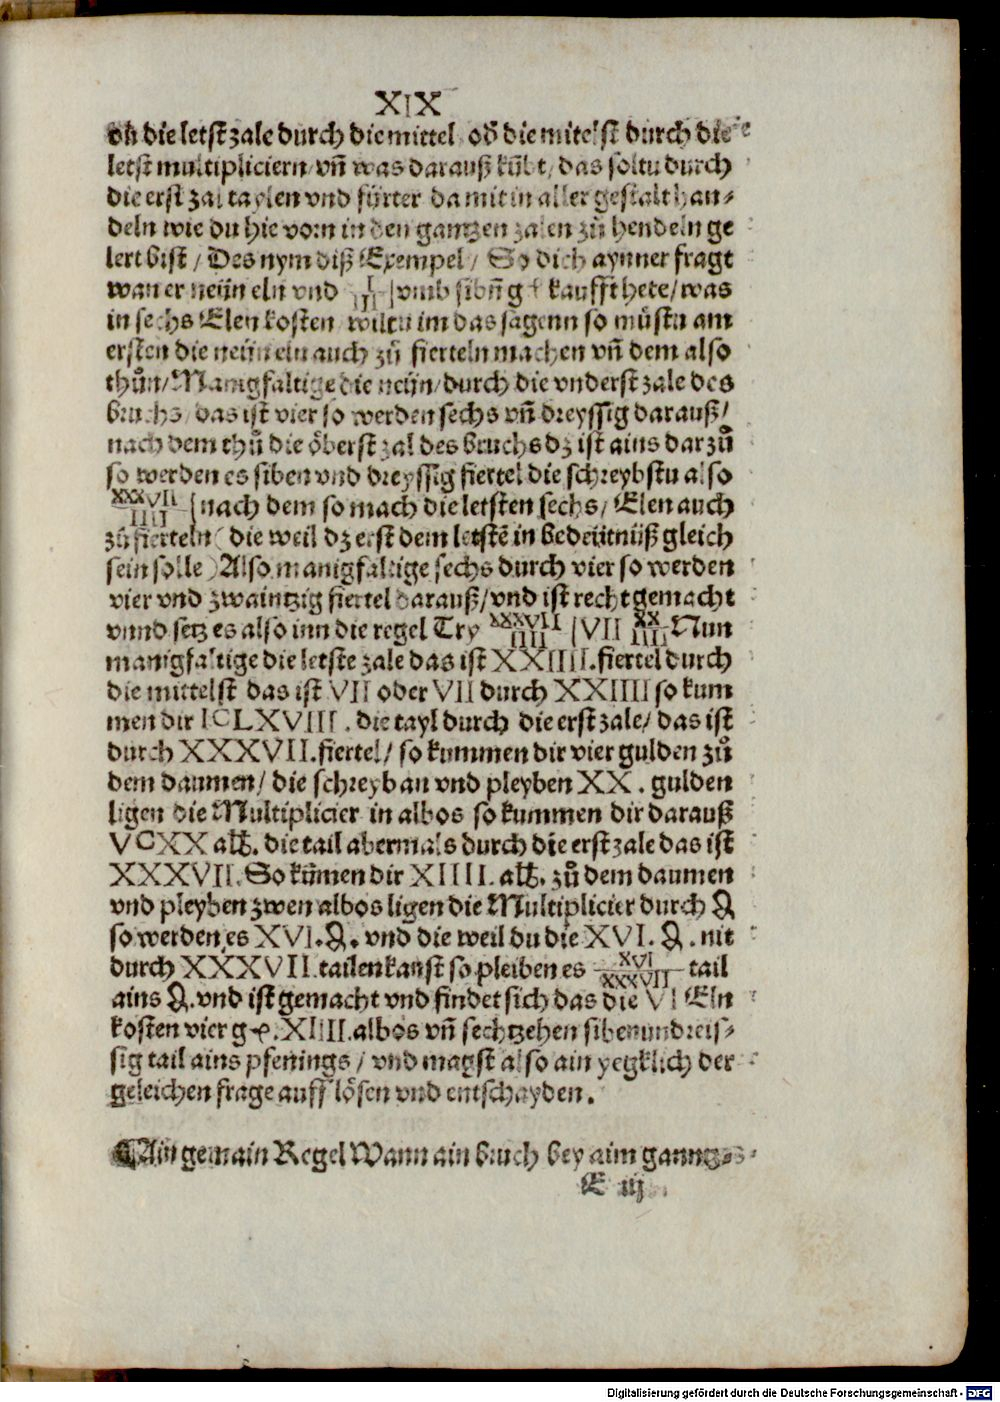 XIX
die letst zale durch die mittel, od̄ die mitelst durch die
letst multipliciern / vn̄ was darauß kūbt / das soltu durch
die erst zal taylen vnd fürter da mit in aller gestalt han⸗
deln wie du hie vorn in den gantzen zalen zů hendeln ge
lert bist / Des nym diß Exempel / So dich aynner fragt
wan er neün eln vnd I/IIII vmb sibn̄ g kaufft hete / was
in sechs Elen kosten wiltu im das sagenn so můstu am
ersten die neün eln auch zů fierteln machen vn̄ dem also
thůn / Manigfaltige die neün / durch die vnderst zale des
bruchs / das ist vier so werden sechs vn̄ dreyssig darauß /
nach dem thů die öberst zal des bruchs dz ist ains darzů
so werden es siben vnd dreyssig fiertel die schreybstu also
XXXVII/IIII nach dem so mach die letsten sechs / Elen auch
zů fierteln ( die weil dz erst dem letstē in bedeütnüß gleich
sein solle ) Also manigfaltige sechs durch vier so werden
vier vnd zwaintzig fiertel darauß / vnd ist recht gemacht
vnnd setz es also inn die regel Try XXXVII/IIII VII XX/IIII Nun
manigfaltige die letste zale das ist XXIIII. fiertel durch
die mittelst das ist VII oder VII durch XXIIII so kum
men dir ICLXVIII. die tayl durch die erst zale / das ist
durch XXXVII. fiertel / so kummen dir vier gulden zů
dem daumen / die schreyb an vnd pleyben XX. gulden
ligen die Multiplicier in albos so kummen dir darauß
VCXX alb. die tail abermals durch die erst zale das ist
XXXVII. So kūmen dir XIIII. alb. zů dem daumen
vnd pleyben zwen albos ligen die Multiplicier durch ₰
so werden es XVI. ₰. vnd die weil du die XVI. ₰. nit
durch XXXVII tailen kanst so pleiben es XVI/XXXVII tail
ains ₰. vnd ist gemacht vnd findet sich das die VI Eln
kosten vier g. XIIII. albos vn̄ sechtzehen sibenundreis⸗
sig tail ains pfennings / vnd magst also ain yegklich der
geleichen frage auff lösen vnd entschayden.
¶ Ain gemain Regel Wann ain bruch bey aim ganntz⸗
E iij
Digitalisierung gefördert durch die Deutsche Forschungsgemeinschaft - DFG